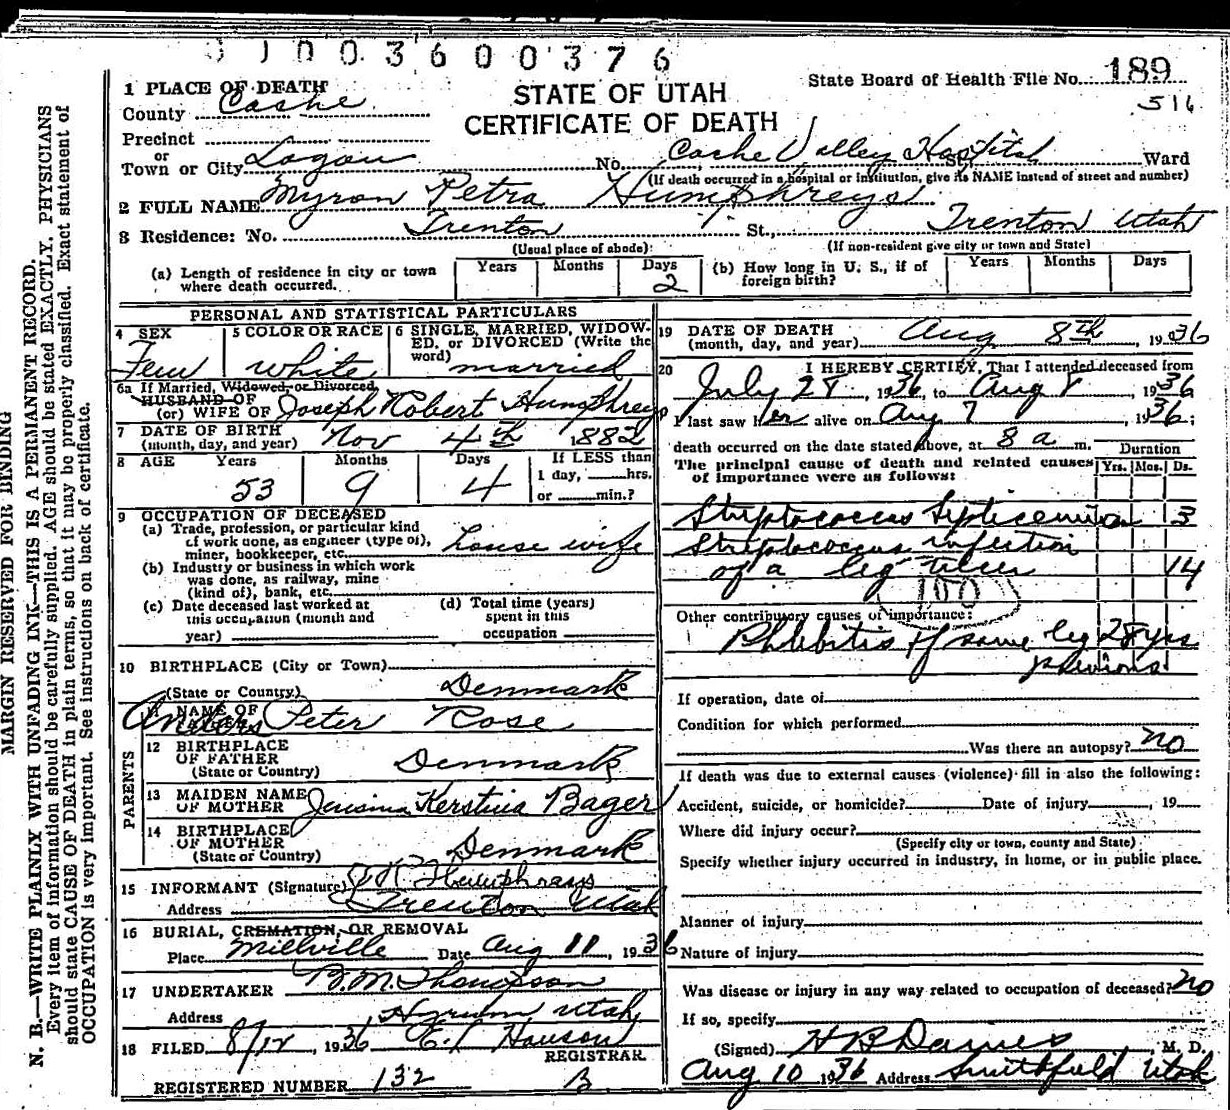 0 1 0 0 3 6 0 0 3 7 6
State Board of Health File No. 189
516
STATE OF UTAH
CERTIFICATE OF DEATH
1 PLACE OF DEATH
County Cache
Precinct
or
Town or City Logan No. Cache Valley Hospital St., Ward
(If death occurred in a hospital or institution, give its NAME instead of street and number)
2 FULL NAME Myron Petra Humphreys
3 Residence: No. Trenton St., Trenton Utah
(Usual place of abode) (If non-resident give city or town and State)
(a) Length of residence in city or town where death occurred. Years Months Days 2
(b) How long in U. S., if of foreign birth? Years Months Days
PERSONAL AND STATISTICAL PARTICULARS
4 SEX Fem
5 COLOR OR RACE white
6 SINGLE, MARRIED, WIDOWED, or DIVORCED (Write the word) married
6a If Married, Widowed, or Divorced,
HUSBAND OF
(or) WIFE OF Joseph Robert Humphreys
7 DATE OF BIRTH
(month, day, and year) Nov 4th 1882
8 AGE Years 53 Months 9 Days 4 If LESS than 1 day, hrs. or min.?
9 OCCUPATION OF DECEASED
(a) Trade, profession, or particular kind of work done, as engineer (type of), miner, bookkeeper, etc. house wife
(b) Industry or business in which work was done, as railway, mine (kind of), bank, etc.
(c) Date deceased last worked at this occupation (month and year)
(d) Total time (years) spent in this occupation
10 BIRTHPLACE (City or Town)
(State or Country) Denmark
PARENTS
11 NAME OF Anders Peter Rose
12 BIRTHPLACE OF FATHER
(State or Country) Denmark
13 MAIDEN NAME OF MOTHER Kerstina Bager
14 BIRTHPLACE OF MOTHER
(State or Country) Denmark
15 INFORMANT (Signature) J R Humphreys
Address Trenton Utah
16 BURIAL, CREMATION, OR REMOVAL
Place Millville Date Aug 11, 1936
17 UNDERTAKER B.M. Thompson
Address Hyrum Utah
18 FILED 8/12, 1936 E. L Hanson
REGISTRAR
REGISTERED NUMBER 132 B
19 DATE OF DEATH
(month, day, and year) Aug 8th, 1936
20 I HEREBY CERTIFY, That I attended deceased from
July 28, 1936, to Aug 8, 1936
I last saw her alive on Aug 7, 1936;
death occurred on the date stated above, at 8 a m.
The principal cause of death and related causes of importance were as follows: Duration Yrs. Mos. Ds.
Streptococcus Septicemia 3
Streptococcus infection
of a leg ulcer 14
100
Other contributory causes of importance:
Phlebitis of same leg 28 yrs
previous
If operation, date of
Condition for which performed
Was there an autopsy? no
If death was due to external causes (violence) fill in also the following:
Accident, suicide, or homicide? Date of injury, 19
Where did injury occur?
(Specify city or town, county and State)
Specify whether injury occurred in industry, in home, or in public place.
Manner of injury
Nature of injury
Was disease or injury in any way related to occupation of deceased? no
If so, specify
(Signed) H B Daines M. D.
Aug 10 1936 Address Smithfield Utah
MARGIN RESERVED FOR BINDING
N. B.—WRITE PLAINLY WITH UNFADING INK—THIS IS A PERMANENT RECORD.
Every item of information should be carefully supplied. AGE should be stated EXACTLY. PHYSICIANS
should state CAUSE OF DEATH in plain terms, so that it may be properly classified. Exact statement of
OCCUPATION is very important. See instructions on back of certificate.